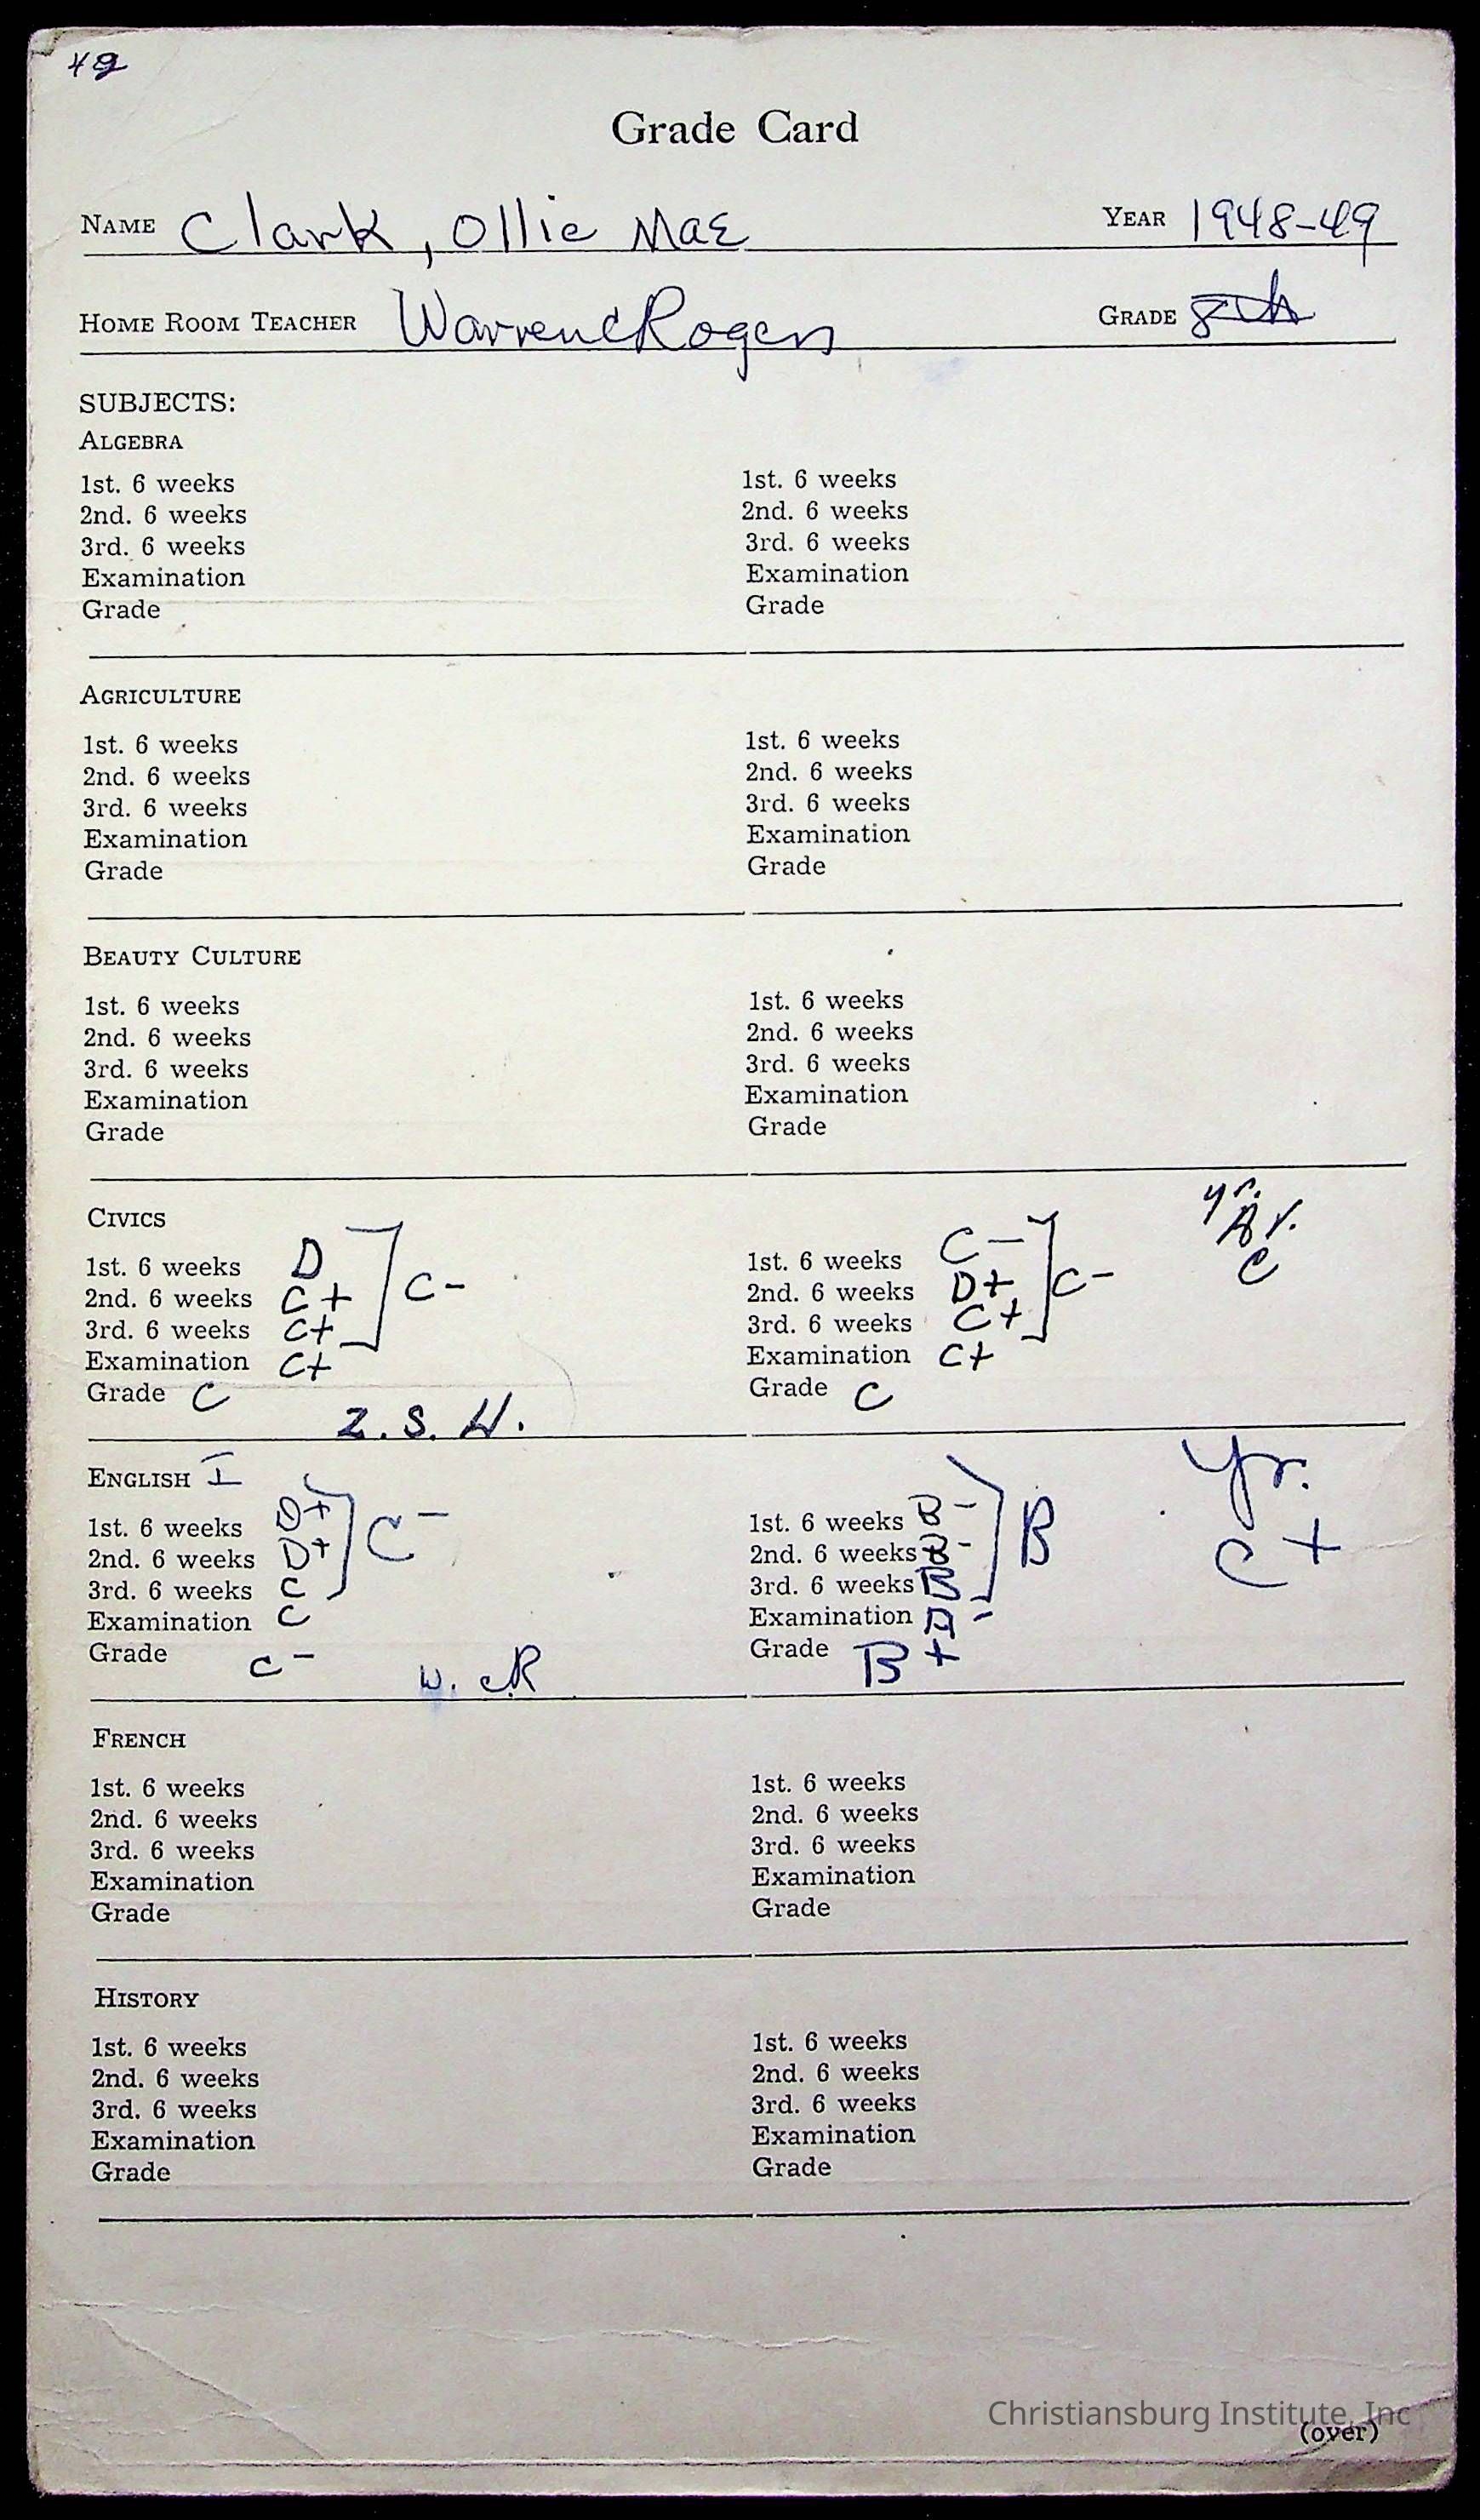 49
Grade Card
NAME Clark, Ollie Mae YEAR 1948-49
HOME ROOM TEACHER Warren C Rogers GRADE 8th
SUBJECTS:
ALGEBRA
1st. 6 weeks 1st. 6 weeks
2nd. 6 weeks 2nd. 6 weeks
3rd. 6 weeks 3rd. 6 weeks
Examination Examination
Grade Grade
AGRICULTURE
1st. 6 weeks 1st. 6 weeks
2nd. 6 weeks 2nd. 6 weeks
3rd. 6 weeks 3rd. 6 weeks
Examination Examination
Grade Grade
BEAUTY CULTURE
1st. 6 weeks 1st. 6 weeks
2nd. 6 weeks 2nd. 6 weeks
3rd. 6 weeks 3rd. 6 weeks
Examination Examination
Grade Grade
CIVICS yr. Av.
1st. 6 weeks D 1st. 6 weeks C- C
2nd. 6 weeks C+ C- 2nd. 6 weeks D+ C-
3rd. 6 weeks C+ 3rd. 6 weeks C+
Examination C+ Examination C+
Grade C Grade C
Z. S. H.
ENGLISH I Yr.
1st. 6 weeks D+ C- 1st. 6 weeks B- B C+
2nd. 6 weeks D+ 2nd. 6 weeks B-
3rd. 6 weeks C 3rd. 6 weeks B
Examination C Examination A-
Grade C- Grade B+
W. C R
FRENCH
1st. 6 weeks 1st. 6 weeks
2nd. 6 weeks 2nd. 6 weeks
3rd. 6 weeks 3rd. 6 weeks
Examination Examination
Grade Grade
HISTORY
1st. 6 weeks 1st. 6 weeks
2nd. 6 weeks 2nd. 6 weeks
3rd. 6 weeks 3rd. 6 weeks
Examination Examination
Grade Grade
Christiansburg Institute, Inc
(over)